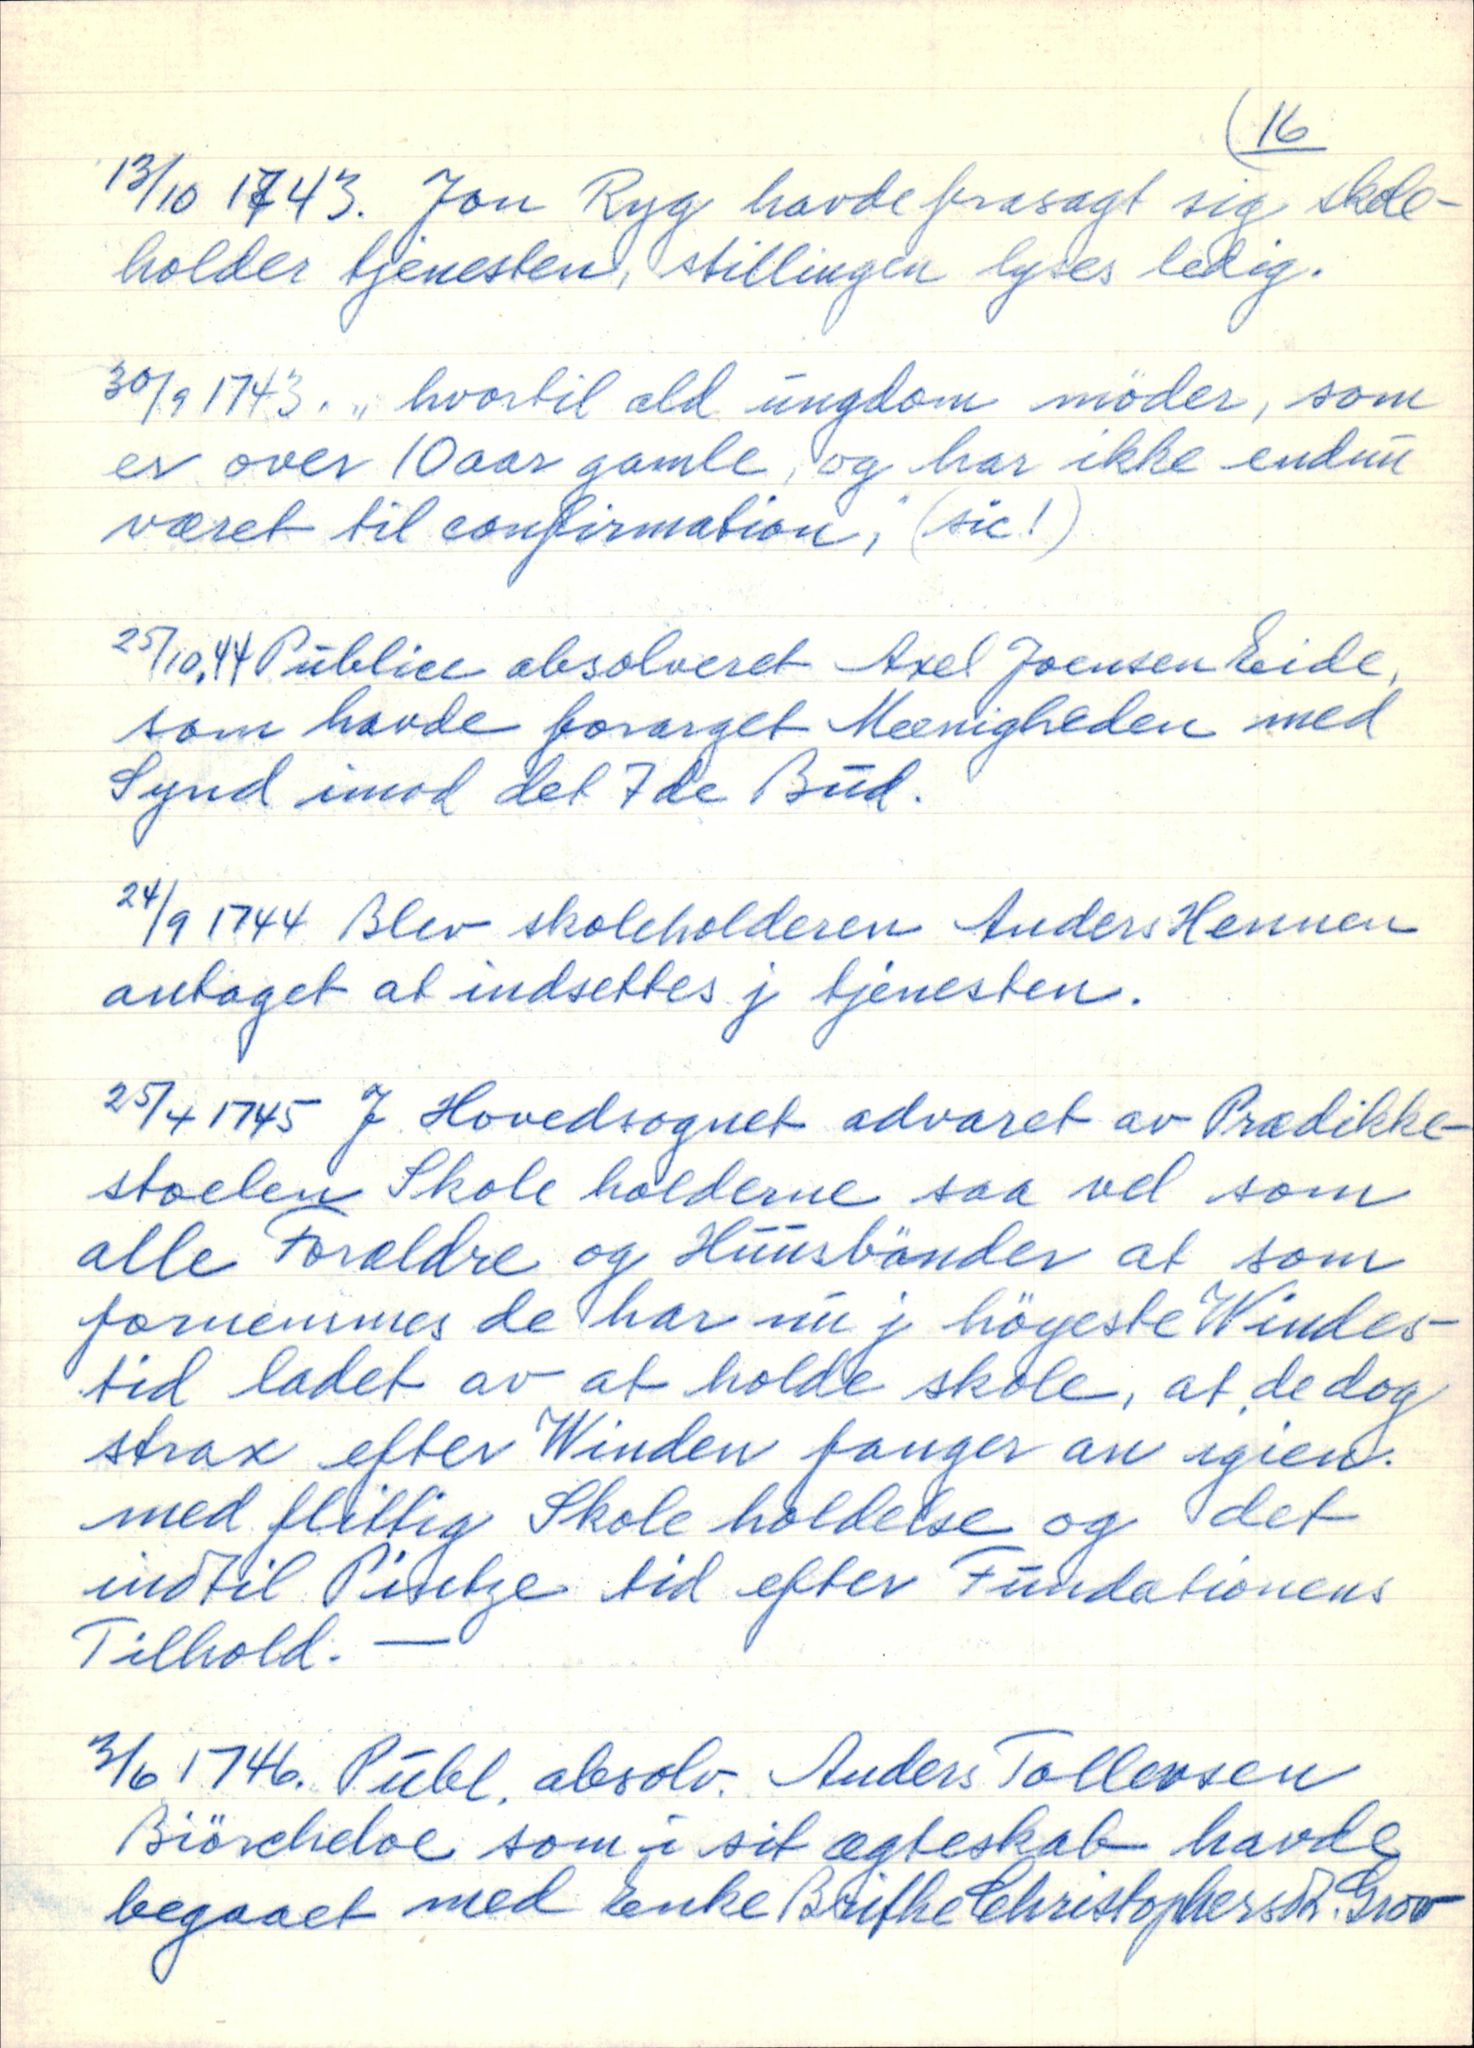 16
13/10 1743. Jon Ryg havde frasagt sig skole-
holder tjenesten, stillingen lyses ledig.
30/9 1743. „ hvortil ald ungdom möder, som
er over 10 aar gamle, og har ikke endnu
været til confirmation," (sic!)
25/10.44 Publice absolveret Axel Joensen Eide,
som havde forarget Meenigheden med
Synd imod det 7de Bud.
24/9 1744 Blev skoleholderen Anders Hennen
antaget at indsettes j tjenesten.
25/4 1745 J Hovedsognet advaret av Prædikke-
stoelen Skole holderne saa vel som
alle Forældre og Huusbönder at som
fornemmes de har nu j högeste Windes-
tid ladet av at holde skole, at de dog
strax efter Winden fanger an igien.
med flittig Skole holdelse og det
indtil Pintze tid efter Fundationens
Tilhold. —
3/6 1746. Publ. absolv. Anders Tollevsen
Biörcheloe som i sit ægteskab havde
begaaet med Enke Brithe Christophersdt. Grov